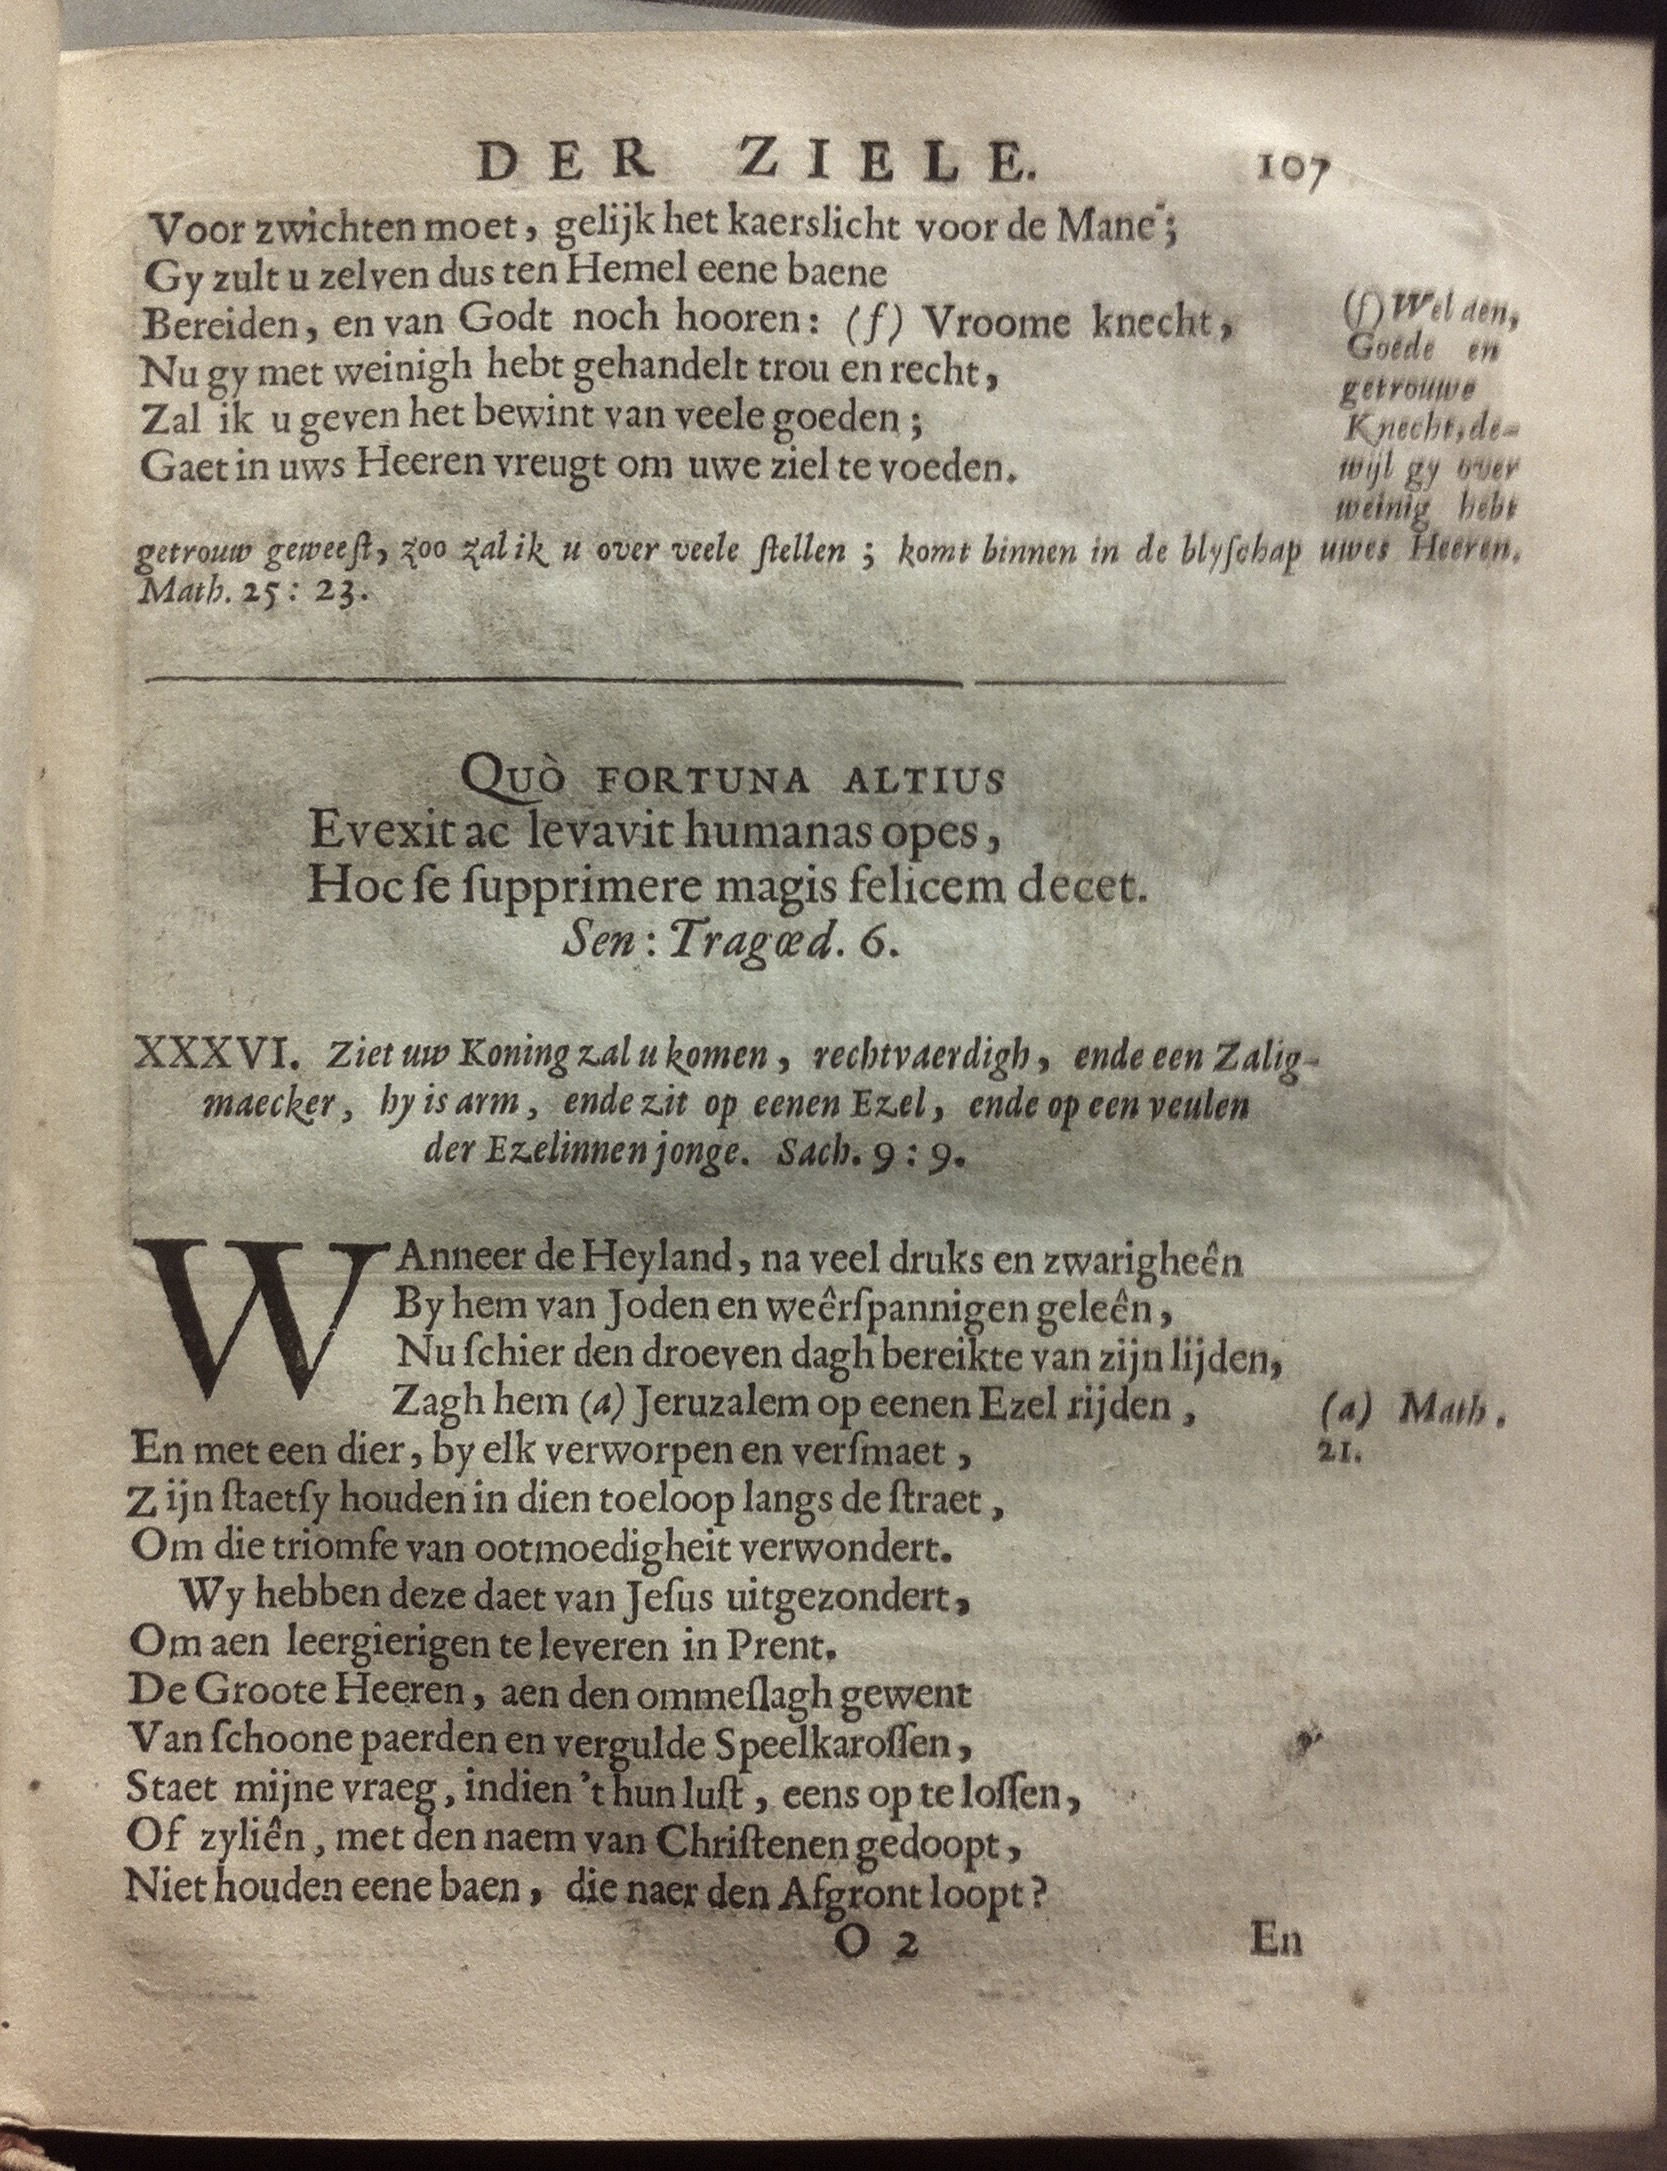 DER ZIELE. 107
Voor zwichten moet, gelijk het kaerslicht voor de Mane;
Gy zult u zelven dus ten Hemel eene baene
Bereiden, en van Godt noch hooren: (f) Vroome knecht,
Nu gy met weinigh hebt gehandelt trou en recht,
Zal ik u geven het bewint van veele goeden;
Gaet in uws Heeren vreugt om uwe ziel te voeden.
(f) Wel den,
Goede en
getrouwe
Knecht, de-
wijl gy over
weinig hebt
getrouw geweeſt, zoo zal ik u over veele ſtellen; komt binnen in de blyſchap uwes Heeren.
Math. 25: 23.
QUÒ FORTUNA ALTIUS
Evexit ac levavit humanas opes,
Hoc ſe ſupprimere magis felicem decet.
Sen: Tragœd. 6.
XXXVI. Ziet uw Koning zal u komen, rechtvaerdigh, ende een Zalig-
maecker, hy is arm, ende zit op eenen Ezel, ende op een veulen
der Ezelinnen jonge. Sach. 9: 9.
WAnneer de Heyland, na veel druks en zwarigheên
By hem van Joden en weêrſpannigen geleên,
Nu ſchier den droeven dagh bereikte van zijn lijden,
Zagh hem (a) Jeruzalem op eenen Ezel rijden,
(a) Math.
21.
En met een dier, by elk verworpen en verſmaet,
Zijn ſtaetſy houden in dien toeloop langs de ſtraet,
Om die triomfe van ootmoedigheit verwondert.
Wy hebben deze daet van Jeſus uitgezondert,
Om aen leergierigen te leveren in Prent.
De Groote Heeren, aen den ommeſlagh gewent
Van ſchoone paerden en vergulde Speelkaroſſen,
Staet mijne vraeg, indien 't hun luſt, eens op te loſſen,
Of zyliên, met den naem van Chriſtenen gedoopt,
Niet houden eene baen, die naer den Afgront loopt?
O 2 En